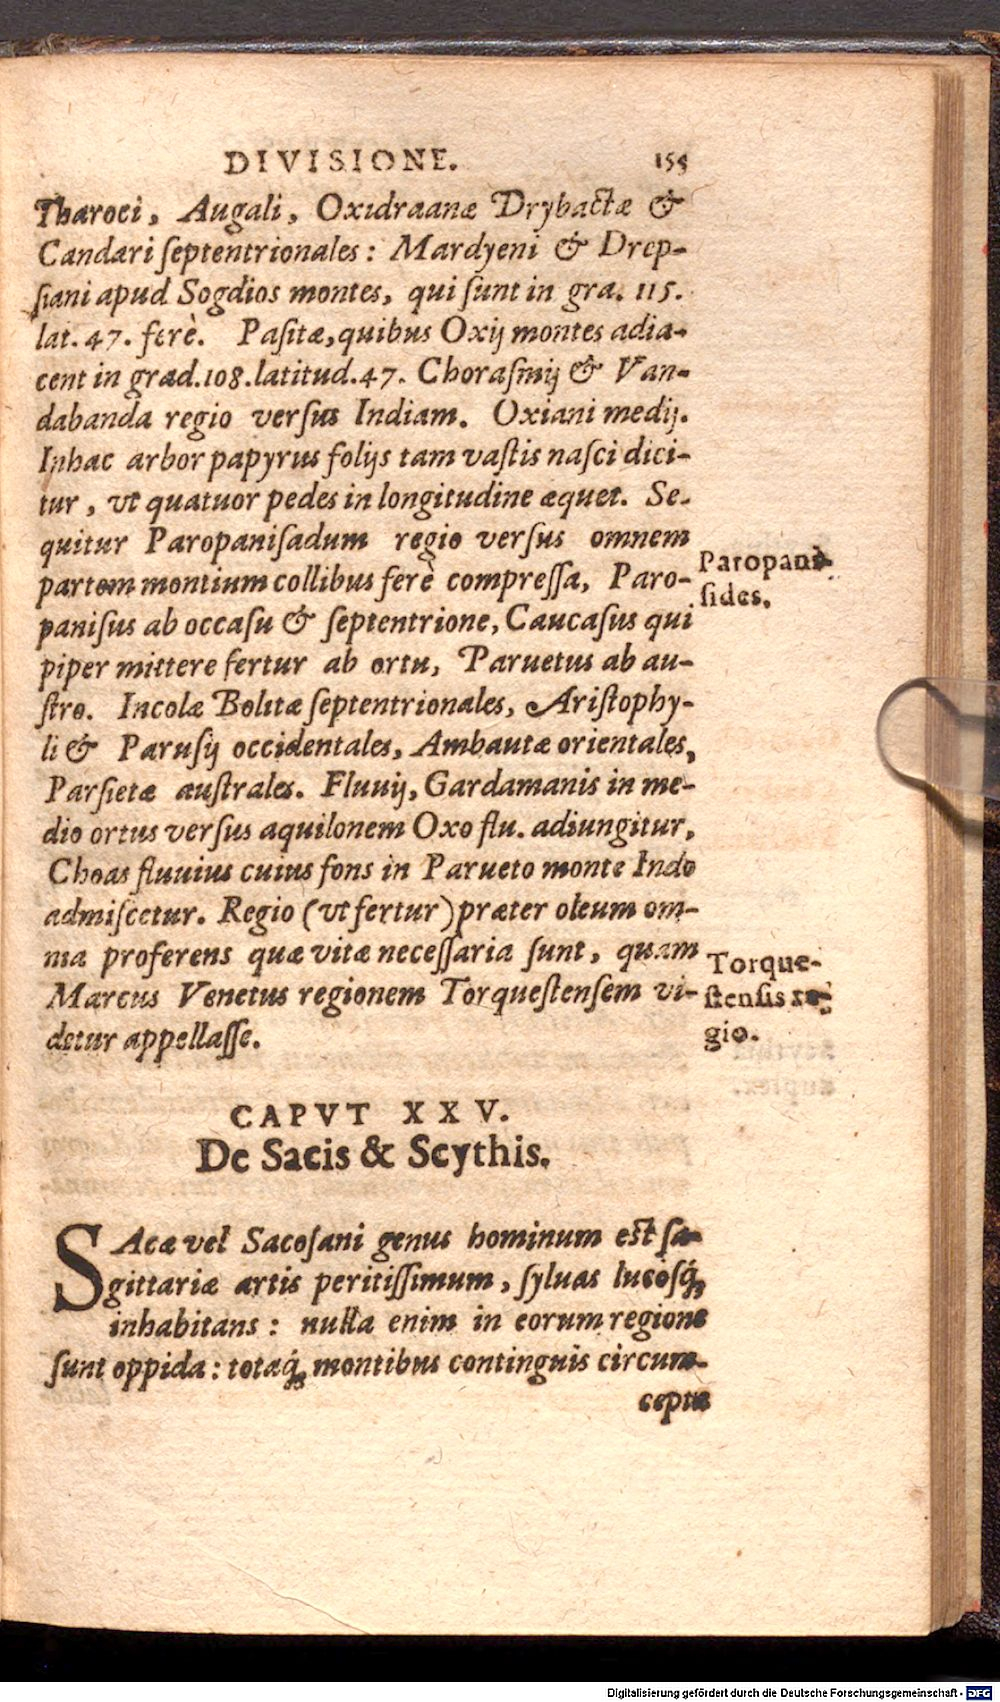 DIVISIONE. 155
Tharoci, Augali, Oxidraanæ Drybactæ &
Candari ſeptentrionales: Mardyeni & Drep-
ſiani apud Sogdios montes, qui ſunt in gra. 115.
lat. 47. ferè. Paſitæ, quibus Oxij montes adia-
cent in grad. 108. latitud. 47. Choraſmij & Van-
dabanda regio verſus Indiam. Oxiani medij.
In hac arbor papyrus folijs tam vaſtis naſci dici-
tur, vt quatuor pedes in longitudine æquet. Se-
quitur Paropaniſadum regio verſus omnem
partem montium collibus ferè compreſſa, Paro-
paniſus ab occaſu & ſeptentrione, Caucaſus qui
piper mittere fertur ab ortu, Paruetus ab au-
ſtro. Incolæ Bolitæ ſeptentrionales, Ariſtophy-
li & Paruſij occidentales, Ambautæ orientales,
Parſietæ auſtrales. Fluuij, Gardamanis in me-
dio ortus verſus aquilonem Oxo flu. adiungitur,
Choas fluuius cuius fons in Parueto monte Indo
admiſcetur. Regio (vt fertur) præter oleum om-
nia proferens quæ vitæ neceſſaria ſunt, quam
Marcus Venetus regionem Torqueſtenſem vi-
detur appellaſſe.
Paropani-
ſides.
Torque-
ſtenſis re-
gio.
CAPVT XXV.
De Sacis & Scythis.
SAcæ vel Sacoſani genus hominum eſt ſa-
gittariæ artis peritiſſimum, ſyluas lucoſq́;
inhabitans: nulla enim in eorum regione
ſunt oppida: totaq́; montibus continguis circum-
cepta
Digitalisierung gefördert durch die Deutsche Forschungsgemeinschaft - DFG